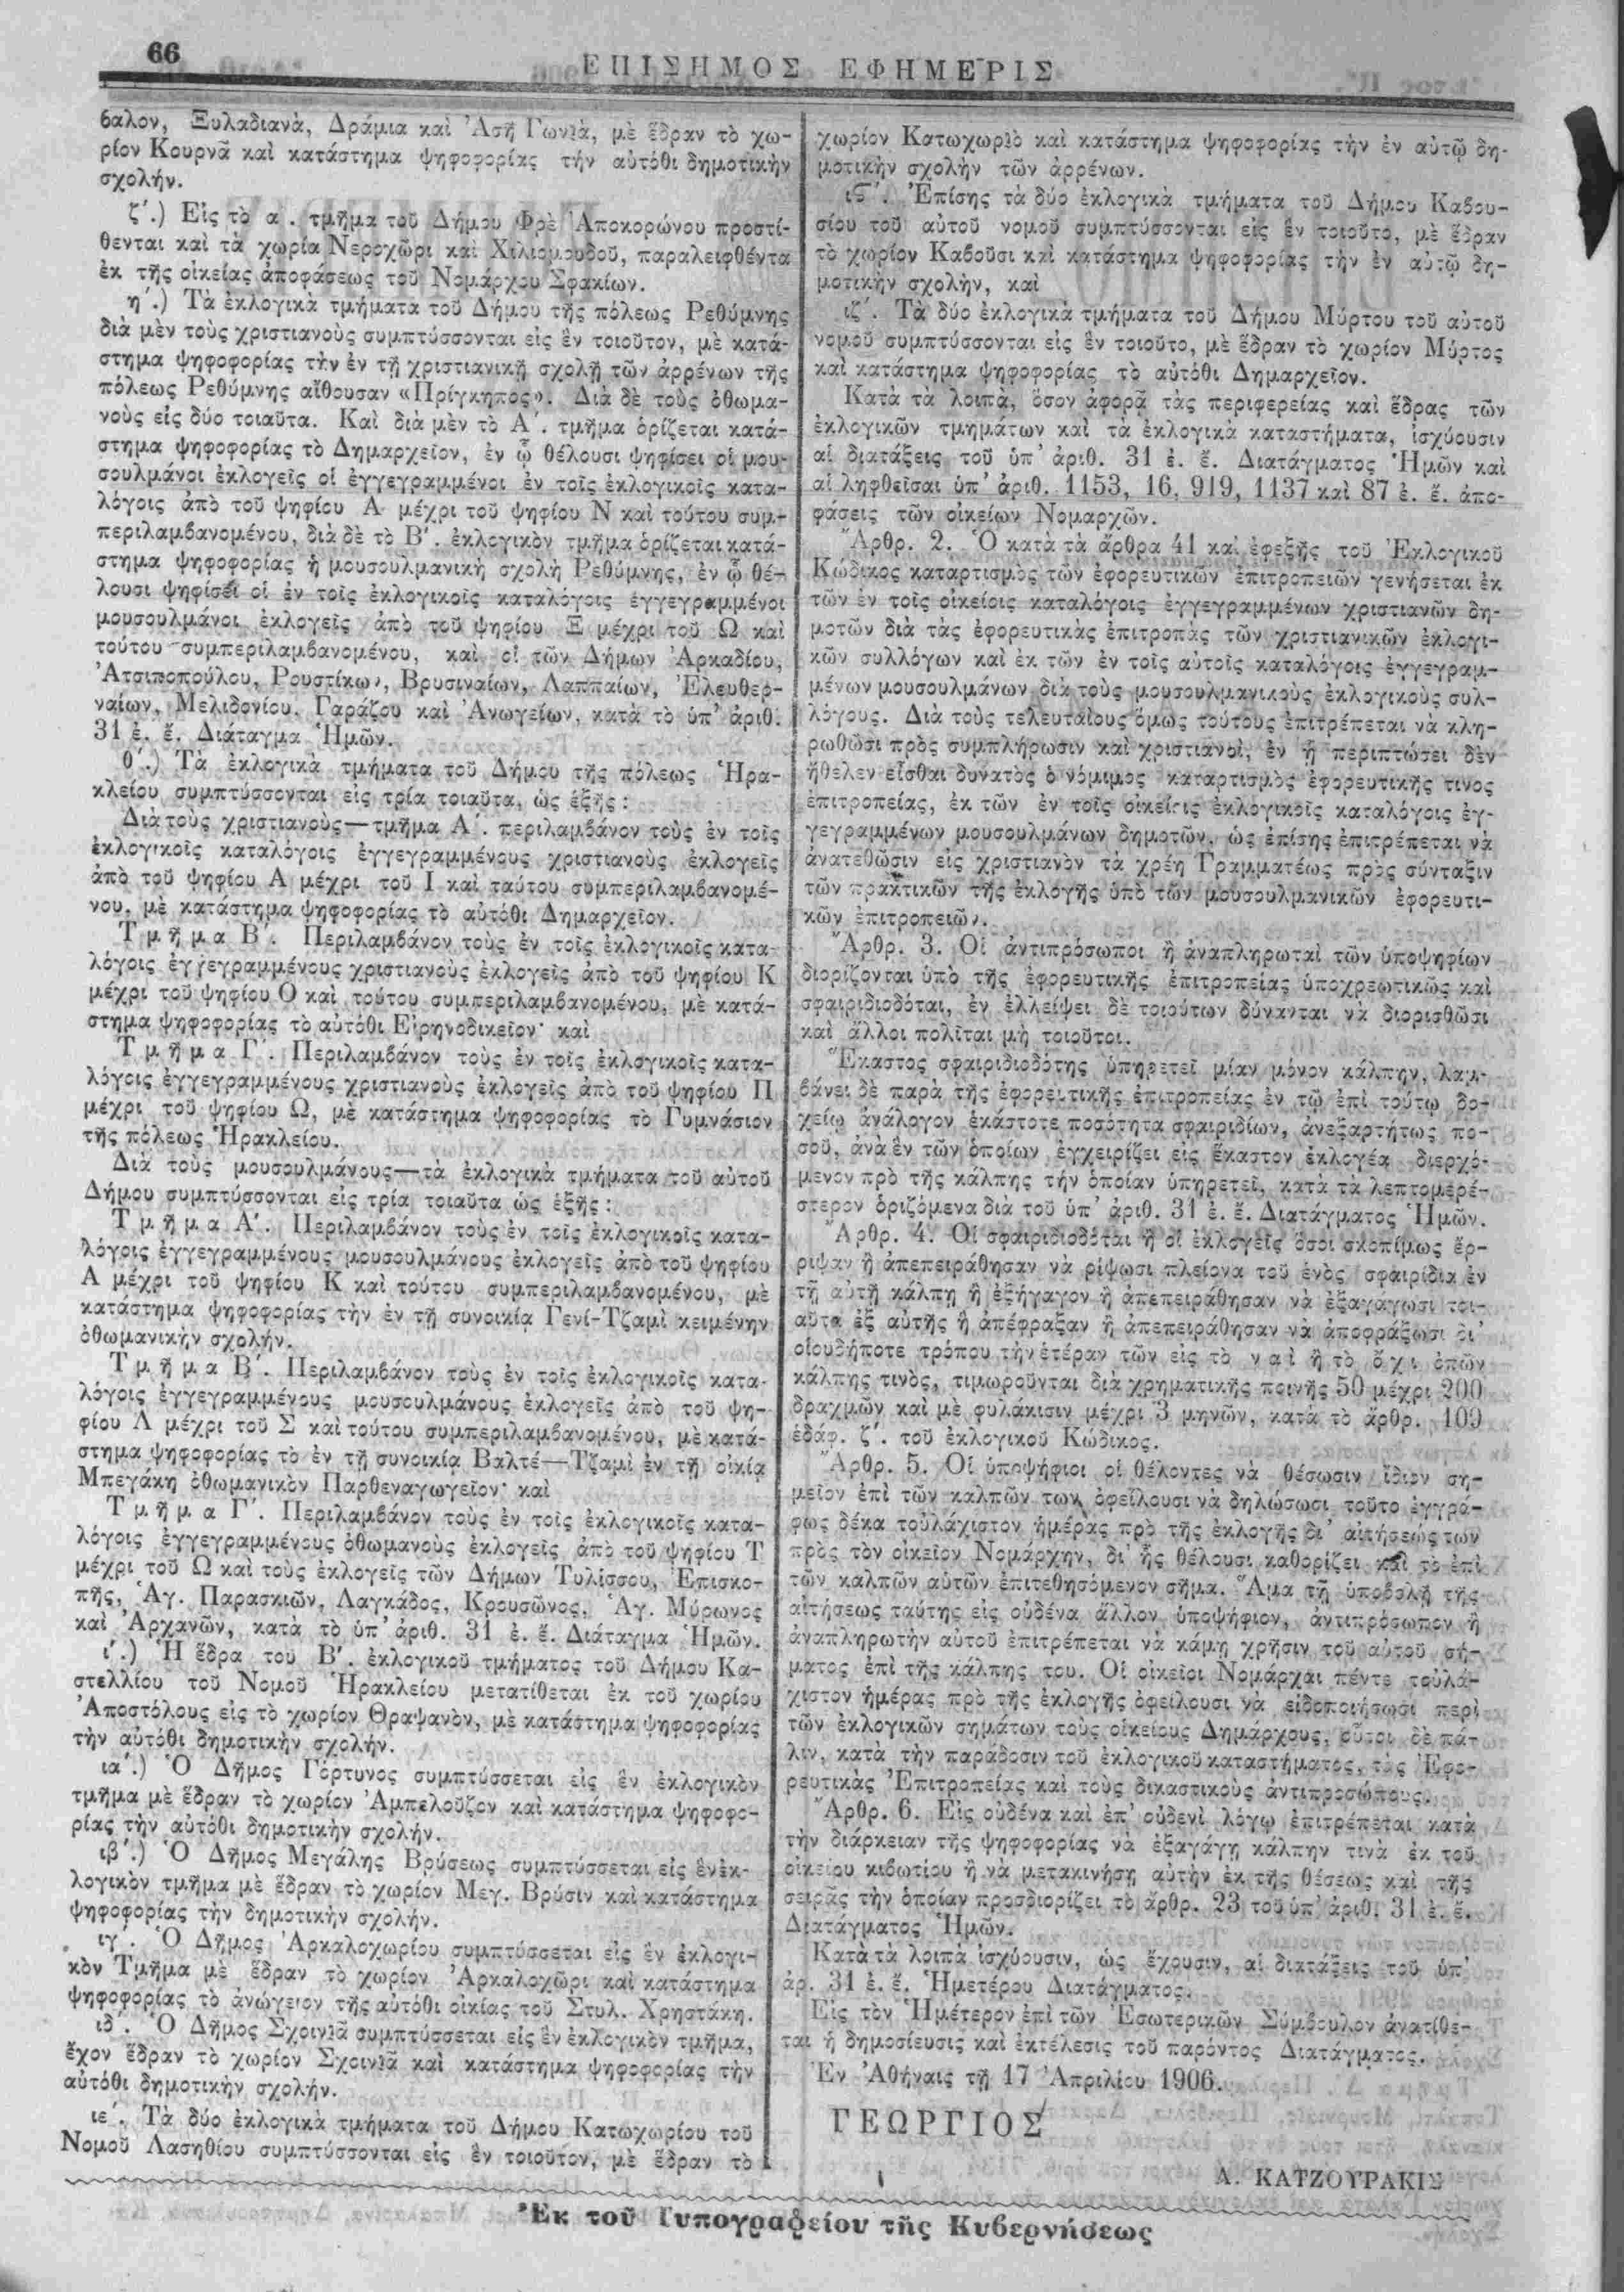 66
ΕΠΙΣΗΜΟΣ ΕΦΗΜΕΡΙΣ
βαλον, Ξυλαδιανὰ, Δράμια καὶ Ἀσῆ Γωνιὰ, μὲ ἕδραν τὸ χω-
ρίον Κουρνᾶ καὶ κατάστημα ψηφοφορίας τήν αὐτόθι δημοτικὴν
σχολήν.
ζ΄.) Εἰς τὸ α . τμῆμα τοῦ Δήμου Φρὲ Ἀποκορώνου προστί-
θενται καὶ τὰ χωρία Νεροχῶρι καὶ Χιλιομουδοῦ, παραλειφθέντα
ἐκ τῆς οἰκείας ἀποφάσεως τοῦ Νομάρχου Σφακίων.
η΄.) Τὰ ἐκλογικὰ τμήματα τοῦ Δήμου τῆς πόλεως Ρεθύμνης
διὰ μὲν τοὺς χριστιανοὺς συμπτύσσονται εἰς ἓν τοιοῦτον, μὲ κατά-
στημα ψηφοφορίας τὴν ἐν τῇ χριστιανικῇ σχολῇ τῶν ἀρρένων τῆς
πόλεως Ρεθύμνης αἴθουσαν «Πρίγκηπος». Διὰ δὲ τοὺς ὀθωμα-
νοὺς εἰς δύο τοιαῦτα. Καὶ διὰ μὲν τὸ Α΄. τμῆμα ὁρίζεται κατά-
στημα ψηφοφορίας τὸ Δημαρχεῖον, ἐν ᾧ θέλουσι ψηφίσει οἱ μου-
σουλμάνοι ἐκλογεῖς οἱ ἐγγεγραμμένοι ἐν τοῖς ἐκλογικοῖς κατα-
λόγοις ἀπὸ τοῦ ψηφίου Α μέχρι τοῦ ψηφίου Ν καὶ τούτου συμ-
περιλαμβανομένου, διὰ δὲ τὸ Β΄. ἐκλογικὸν τμῆμα ὁρίζεται κατά-
στημα ψηφοφορίας ἡ μουσουλμανικὴ σχολὴ Ρεθύμνης, ἐν ᾧ θέ-
λουσι ψηφίσει οἱ ἐν τοῖς ἐκλογικοῖς καταλόγοις ἐγγεγραμμένοι
μουσουλμάνοι ἐκλογεῖς ἀπὸ τοῦ ψηφίου Ξ μέχρι τοῦ Ω καὶ
τούτου συμπεριλαμβανομένου, καὶ οἱ τῶν Δήμων Ἀρκαδίου,
Ἀτσιποπούλου, Ρουστίκων, Βρυσιναίων, Λαππαίων, Ἐλευθερ-
ναίων, Μελιδονίου, Γαράζου καὶ Ἀνωγείων, κατὰ τὸ ὑπ' ἀριθ.
31 ἐ. ἔ. Διάταγμα Ἡμῶν.
θ΄.) Τὰ ἐκλογικὰ τμήματα τοῦ Δήμου τῆς πόλεως Ἡρα-
κλείου συμπτύσσονται εἰς τρία τοιαῦτα, ὡς ἑξῆς :
Διὰ τοὺς χριστιανοὺς—τμῆμα Α΄. περιλαμβάνον τοὺς ἐν τοῖς
ἐκλογικοῖς καταλόγοις ἐγγεγραμμένους χριστιανοὺς ἐκλογεῖς
ἀπὸ τοῦ ψηφίου Α μέχρι τοῦ Ι καὶ ταύτου συμπεριλαμβανομέ-
νου, μὲ κατάστημα ψηφοφορίας τὸ αὐτόθι Δημαρχεῖον.
Τμῆμα Β΄. Περιλαμβάνον τοὺς ἐν τοῖς ἐκλογικοῖς κατα-
λόγοις ἐγγεγραμμένους χριστιανοὺς ἐκλογεῖς ἀπὸ τοῦ ψηφίου Κ
μέχρι τοῦ ψηφίου Ο καὶ τούτου συμπεριλαμβανομένου, μὲ κατά-
στημα ψηφοφορίας τὸ αὐτόθι Εἰρηνοδικεῖον· καὶ
Τμῆμα Γ΄. Περιλαμβάνον τοὺς ἐν τοῖς ἐκλογικοῖς κατα-
λόγοις ἐγγεγραμμένους χριστιανοὺς ἐκλογεῖς ἀπὸ τοῦ ψηφίου Π
μέχρι τοῦ ψηφίου Ω, μὲ κατάστημα ψηφοφορίας τὸ Γυμνάσιον
τῆς πόλεως Ἡρακλείου.
Διὰ τοὺς μουσουλμάνους—τὰ ἐκλογικὰ τμήματα τοῦ αὐτοῦ
Δήμου συμπτύσσονται εἰς τρία τοιαῦτα ὡς ἑξῆς :
Τμῆμα Α΄. Περιλαμβάνον τοὺς ἐν τοῖς ἐκλογικοῖς κατα-
λόγοις ἐγγεγραμμένους μουσουλμάνους ἐκλογεῖς ἀπὸ τοῦ ψηφίου
Α μέχρι τοῦ ψηφίου Κ καὶ τούτου συμπεριλαμβανομένου, μὲ
κατάστημα ψηφοφορίας τὴν ἐν τῇ συνοικίᾳ Γενί-Τζαμὶ κειμένην
ὀθωμανικὴν σχολήν.
Τμῆμα Β΄. Περιλαμβάνον τοὺς ἐν τοῖς ἐκλογικοῖς κατα-
λόγοις ἐγγεγραμμένους μουσουλμάνους ἐκλογεῖς ἀπὸ τοῦ ψη-
φίου Λ μέχρι τοῦ Σ καὶ τούτου συμπεριλαμβανομένου, μὲ κατά-
στημα ψηφοφορίας τὸ ἐν τῇ συνοικίᾳ Βαλτέ—Τζαμὶ ἐν τῇ οἰκίᾳ
Μπεγάκη ὀθωμανικὸν Παρθεναγωγεῖον· καὶ
Τμῆμα Γ΄. Περιλαμβάνον τοὺς ἐν τοῖς ἐκλογικοῖς κατα-
λόγοις ἐγγεγραμμένους ὀθωμανοὺς ἐκλογεῖς ἀπὸ τοῦ ψηφίου Τ
μέχρι τοῦ Ω καὶ τοὺς ἐκλογεῖς τῶν Δήμων Τυλίσσου, Ἐπισκο-
πῆς, Ἁγ. Παρασκιῶν, Λαγκάδος, Κρουσῶνος, Ἁγ. Μύρωνος
καὶ Ἀρχανῶν, κατὰ τὸ ὑπ' ἀριθ. 31 ἐ. ἔ. Διάταγμα Ἡμῶν.
ι΄.) Ἡ ἕδρα τοῦ Β΄. ἐκλογικοῦ τμήματος τοῦ Δήμου Κα-
στελλίου τοῦ Νομοῦ Ἡρακλείου μετατίθεται ἐκ τοῦ χωρίου
Ἀποστόλους εἰς τὸ χωρίον Θραψανὸν, μὲ κατάστημα ψηφοφορίας
τὴν αὐτόθι δημοτικὴν σχολήν.
ια΄.) Ὁ Δῆμος Γόρτυνος συμπτύσσεται εἰς ἓν ἐκλογικὸν
τμῆμα μὲ ἕδραν τὸ χωρίον Ἀμπελοῦζον καὶ κατάστημα ψηφοφο-
ρίας τὴν αὐτόθι δημοτικὴν σχολήν.
ιβ΄.) Ὁ Δῆμος Μεγάλης Βρύσεως συμπτύσσεται εἰς ἓν ἐκ-
λογικὸν τμῆμα μὲ ἕδραν τὸ χωρίον Μεγ. Βρύσιν καὶ κατάστημα
ψηφοφορίας τὴν δημοτικὴν σχολήν.
ιγ΄. Ὁ Δῆμος Ἀρκαλοχωρίου συμπτύσσεται εἰς ἓν ἐκλογι-
κὸν Τμῆμα μὲ ἕδραν τὸ χωρίον Ἀρκαλοχῶρι καὶ κατάστημα
ψηφοφορίας τὸ ἀνώγειον τῆς αὐτόθι οἰκίας τοῦ Στυλ. Χρηστάκη.
ιδ΄. Ὁ Δῆμος Σχοινιᾶ συμπτύσσεται εἰς ἓν ἐκλογικὸν τμῆμα,
ἔχον ἕδραν τὸ χωρίον Σχοινιᾶ καὶ κατάστημα ψηφοφορίας τὴν
αὐτόθι δημοτικὴν σχολήν.
ιε΄. Τὰ δύο ἐκλογικὰ τμήματα τοῦ Δήμου Κατωχωρίου τοῦ
Νομοῦ Λασηθίου συμπτύσσονται εἰς ἓν τοιοῦτον, μὲ ἕδραν τὸ
χωρίον Κατωχωριὸ καὶ κατάστημα ψηφοφορίας τὴν ἐν αὐτῷ δη-
μοτικὴν σχολὴν τῶν ἀρρένων.
ιϛ΄. Ἐπίσης τὰ δύο ἐκλογικὰ τμήματα τοῦ Δήμου Καβου-
σίου τοῦ αὐτοῦ νομοῦ συμπτύσσονται εἰς ἓν τοιοῦτο, μὲ ἕδραν
τὸ χωρίον Καβοῦσι καὶ κατάστημα ψηφοφορίας τὴν ἐν αὐτῷ δη-
μοτικὴν σχολὴν, καὶ
ιζ΄. Τὰ δύο ἐκλογικὰ τμήματα τοῦ Δήμου Μύρτου τοῦ αὐτοῦ
νομοῦ συμπτύσσονται εἰς ἓν τοιοῦτο, μὲ ἕδραν τὸ χωρίον Μύρτος
καὶ κατάστημα ψηφοφορίας τὸ αὐτόθι Δημαρχεῖον.
Κατὰ τὰ λοιπὰ, ὅσον ἀφορᾷ τὰς περιφερείας καὶ ἕδρας τῶν
ἐκλογικῶν τμημάτων καὶ τὰ ἐκλογικὰ καταστήματα, ἰσχύουσιν
αἱ διατάξεις τοῦ ὑπ' ἀριθ. 31 ἐ. ἔ. Διατάγματος Ἡμῶν καὶ
αἱ ληφθεῖσαι ὑπ' ἀριθ. 1153, 16, 919, 1137 καὶ 87 ἐ. ἔ. ἀπο-
φάσεις τῶν οἰκείων Νομαρχῶν.
Ἄρθρ. 2. Ὁ κατὰ τὰ ἄρθρα 41 καὶ ἐφεξῆς τοῦ Ἐκλογικοῦ
Κώδικος καταρτισμὸς τῶν ἐφορευτικῶν ἐπιτροπειῶν γενήσεται ἐκ
τῶν ἐν τοῖς οἰκείοις καταλόγοις ἐγγεγραμμένων χριστιανῶν δη-
μοτῶν διὰ τὰς ἐφορευτικὰς ἐπιτροπὰς τῶν χριστιανικῶν ἐκλογι-
κῶν συλλόγων καὶ ἐκ τῶν ἐν τοῖς αὐτοῖς καταλόγοις ἐγγεγραμ-
μένων μουσουλμάνων διὰ τοὺς μουσουλμανικοὺς ἐκλογικοὺς συλ-
λόγους. Διὰ τοὺς τελευταίους ὅμως τούτους ἐπιτρέπεται νὰ κλη-
ρωθῶσι πρὸς συμπλήρωσιν καὶ χριστιανοὶ, ἐν ᾗ περιπτώσει δὲν
ἤθελεν εἶσθαι δυνατὸς ὁ νόμιμος καταρτισμὸς ἐφορευτικῆς τινος
ἐπιτροπείας, ἐκ τῶν ἐν τοῖς οἰκείοις ἐκλογικοῖς καταλόγοις ἐγ-
γεγραμμένων μουσουλμάνων δημοτῶν, ὡς ἐπίσης ἐπιτρέπεται νὰ
ἀνατεθῶσιν εἰς χριστιανὸν τὰ χρέη Γραμματέως πρὸς σύνταξιν
τῶν πρακτικῶν τῆς ἐκλογῆς ὑπὸ τῶν μουσουλμανικῶν ἐφορευτι-
κῶν ἐπιτροπειῶν.
Ἄρθρ. 3. Οἱ ἀντιπρόσωποι ἢ ἀναπληρωταὶ τῶν ὑποψηφίων
διορίζονται ὑπὸ τῆς ἐφορευτικῆς ἐπιτροπείας ὑποχρεωτικῶς καὶ
σφαιριδιοδόται, ἐν ἐλλείψει δὲ τοιούτων δύνανται νὰ διορισθῶσι
καὶ ἄλλοι πολῖται μὴ τοιοῦτοι.
Ἕκαστος σφαιριδιοδότης ὑπηρετεῖ μίαν μόνον κάλπην, λαμ-
βάνει δὲ παρὰ τῆς ἐφορευτικῆς ἐπιτροπείας ἐν τῷ ἐπὶ τούτῳ δο-
χείῳ ἀνάλογον ἑκάστοτε ποσότητα σφαιριδίων, ἀνεξαρτήτως πο-
σοῦ, ἀνὰ ἓν τῶν ὁποίων ἐγχειρίζει εἰς ἕκαστον ἐκλογέα διερχό-
μενον πρὸ τῆς κάλπης τὴν ὁποίαν ὑπηρετεῖ, κατὰ τὰ λεπτομερέ-
στερον ὁριζόμενα διὰ τοῦ ὑπ' ἀριθ. 31 ἐ. ἔ. Διατάγματος Ἡμῶν.
Ἄρθρ. 4. Οἱ σφαιριδιοδόται ἢ οἱ ἐκλογεῖς ὅσοι σκοπίμως ἔρ-
ριψαν ἢ ἀπεπειράθησαν νὰ ρίψωσι πλείονα τοῦ ἑνὸς σφαιρίδια ἐν
τῇ αὐτῇ κάλπῃ ἢ ἐξήγαγον ἢ ἀπεπειράθησαν νὰ ἐξαγάγωσι τοι-
αῦτα ἐξ αὐτῆς ἢ ἀπέφραξαν ἢ ἀπεπειράθησαν νὰ ἀποφράξωσι δι'
οἱουδήποτε τρόπου τὴν ἑτέραν τῶν εἰς τὸ ναὶ ἢ τὸ ὄχι ὀπῶν
κάλπης τινὸς, τιμωροῦνται διὰ χρηματικῆς ποινῆς 50 μέχρι 200
δραχμῶν καὶ μὲ φυλάκισιν μέχρι 3 μηνῶν, κατὰ τὸ ἄρθρ. 109
ἐδάφ. ζ΄. τοῦ ἐκλογικοῦ Κώδικος.
Ἄρθρ. 5. Οἱ ὑποψήφιοι οἱ θέλοντες νὰ θέσωσιν ἴδιον ση-
μεῖον ἐπὶ τῶν καλπῶν των, ὀφείλουσι νὰ δηλώσωσι τοῦτο ἐγγρά-
φως δέκα τοὐλάχιστον ἡμέρας πρὸ τῆς ἐκλογῆς δι' αἰτήσεώς των
πρὸς τὸν οἰκεῖον Νομάρχην, δι' ἧς θέλουσι καθορίζει καὶ τὸ ἐπὶ
τῶν καλπῶν αὐτῶν ἐπιτεθησόμενον σῆμα. Ἅμα τῇ ὑποβολῇ τῆς
αἰτήσεως ταύτης εἰς οὐδένα ἄλλον ὑποψήφιον, ἀντιπρόσωπον ἢ
ἀναπληρωτὴν αὐτοῦ ἐπιτρέπεται νὰ κάμῃ χρῆσιν τοῦ αὐτοῦ σή-
ματος ἐπὶ τῆς κάλπης του. Οἱ οἰκεῖοι Νομάρχαι πέντε τοὐλά-
χιστον ἡμέρας πρὸ τῆς ἐκλογῆς ὀφείλουσι νὰ εἰδοποιήσωσι περὶ
τῶν ἐκλογικῶν σημάτων τοὺς οἰκείους Δημάρχους, οὗτοι δὲ πά-
λιν, κατὰ τὴν παράδοσιν τοῦ ἐκλογικοῦ καταστήματος, τὰς Ἐφο-
ρευτικὰς Ἐπιτροπείας καὶ τοὺς δικαστικοὺς ἀντιπροσώπους.
Ἄρθρ. 6. Εἰς οὐδένα καὶ ἐπ' οὐδενὶ λόγῳ ἐπιτρέπεται κατὰ
τὴν διάρκειαν τῆς ψηφοφορίας νὰ ἐξαγάγῃ κάλπην τινὰ ἐκ τοῦ
οἰκείου κιβωτίου ἢ νὰ μετακινήσῃ αὐτὴν ἐκ τῆς θέσεως καὶ τῆς
σειρᾶς τὴν ὁποίαν προσδιορίζει τὸ ἄρθρ. 23 τοῦ ὑπ' ἀριθ. 31 ἐ. ἔ.
Διατάγματος Ἡμῶν.
Κατὰ τὰ λοιπὰ ἰσχύουσιν, ὡς ἔχουσιν, αἱ διατάξεις τοῦ ὑπ'
ἀρ. 31 ἐ. ἔ. Ἡμετέρου Διατάγματος.
Εἰς τὸν Ἡμέτερον ἐπὶ τῶν Ἐσωτερικῶν Σύμβουλον ἀνατίθε-
ται ἡ δημοσίευσις καὶ ἐκτέλεσις τοῦ παρόντος Διατάγματος.
Ἐν Ἀθήναις τῇ 17 Ἀπριλίου 1906.
ΓΕΩΡΓΙΟΣ
Α. ΚΑΤΖΟΥΡΑΚΙΣ
Ἐκ τοῦ Τυπογραφείου τῆς Κυβερνήσεως